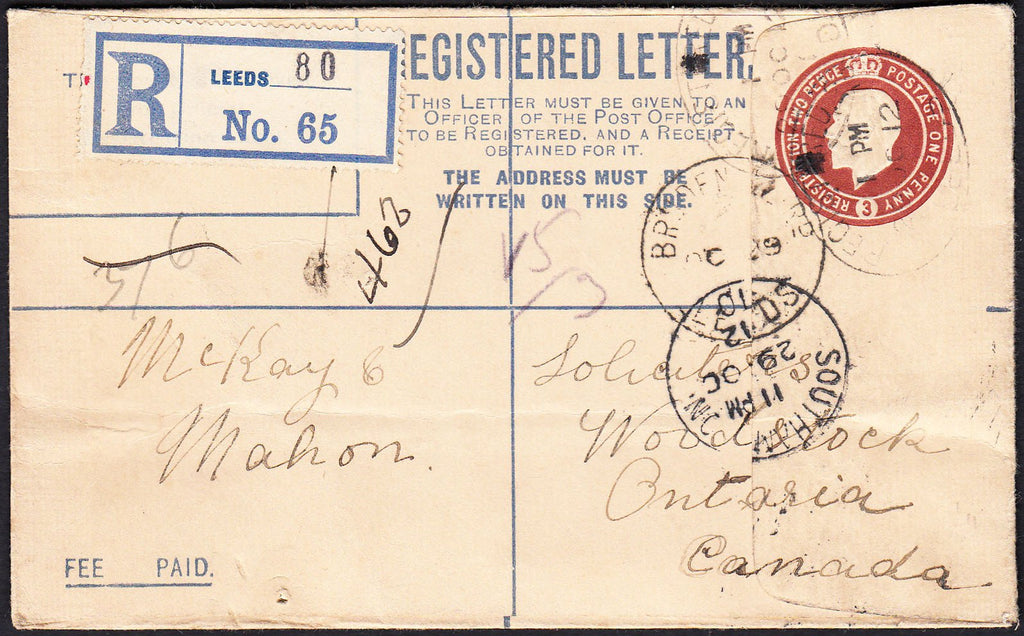 R
LEEDS 80
No. 65
REGISTERED LETTER.
THIS LETTER MUST BE GIVEN TO AN
OFFICER OF THE POST OFFICE
TO BE REGISTERED, AND A RECEIPT
OBTAINED FOR IT.
THE ADDRESS MUST BE
WRITTEN ON THIS SIDE.
POSTAGE ONE PENNY
REGISTRATION TWO PENCE
3
1 PM
OC
12
OC 29
LEEDS
12
29
OC
11 PM
SOUTHN
463
McKay &
Mahon.
Solicitors
Woodstock
Ontario
Canada
FEE PAID.